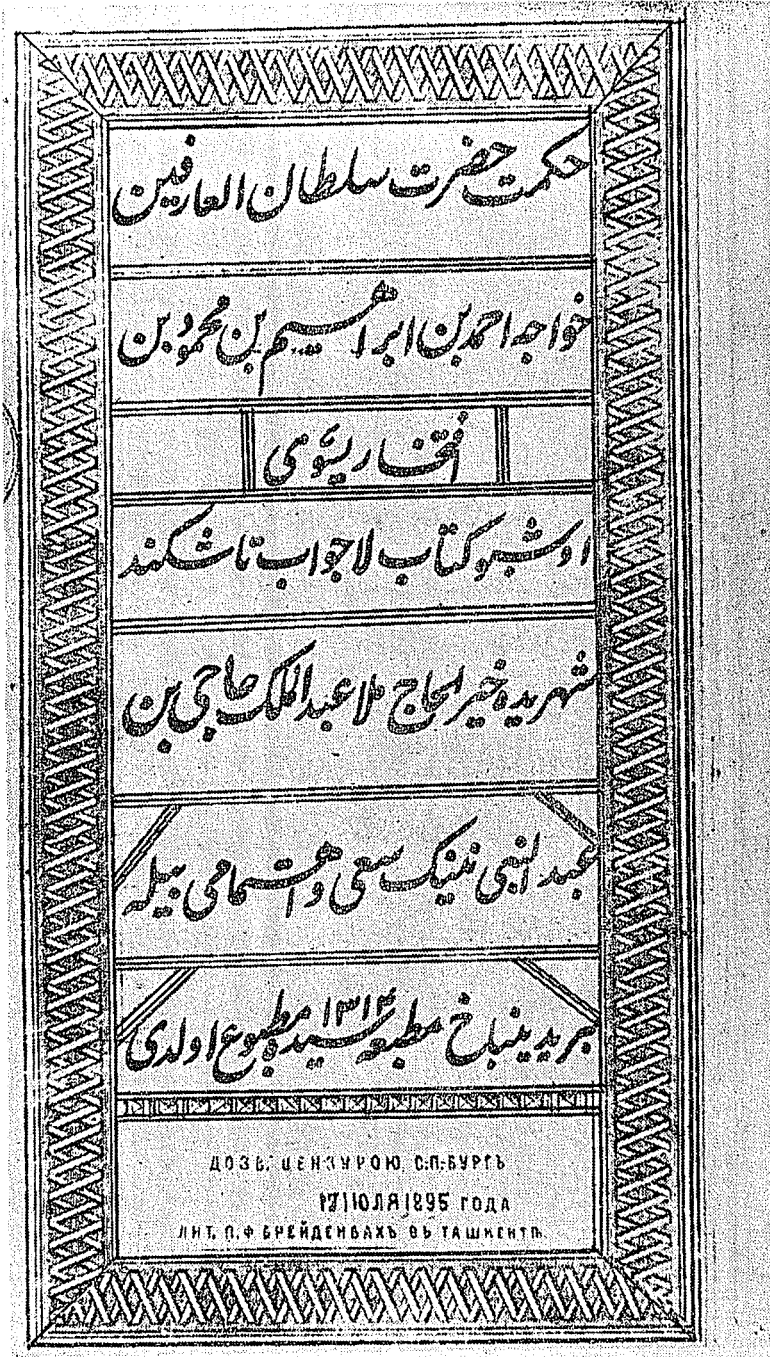 حکمت حضرت سلطان العارفین
خواجه احمد بن ابراهیم بن محمود بن
افتخار یسوی
اوشبو کتاب لاجواب تاشکند
شهریده خیر الحاج ملا عبد الملک حاجی بن
عبد النبی نینک سعی و اهتمامی بیله
بریدینباخ مطبعه سیده مطبوع اولدی
۱۳۱۳
ДОЗВ. ЦЕНЗУРОЮ С.П.-БУРГЪ
17 ІЮЛЯ 1895 ГОДА
ЛИТ. П. Ф БРЕЙДЕНБАХЪ ВЪ ТАШКЕНТѢ